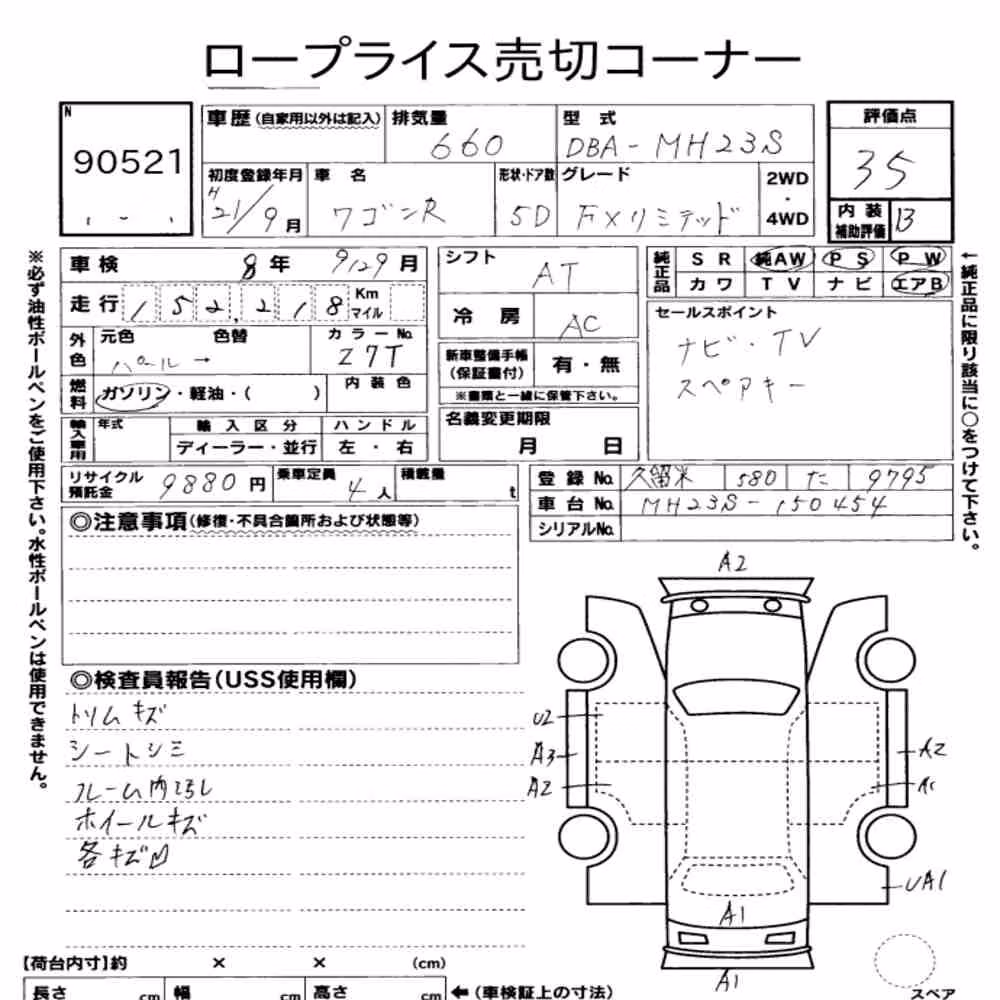 ロープライス売切コーナー
N
90521
車歴(自家用以外は記入)
排気量
660
型式
DBA-MH23S
評価点
35
初度登録年月
H
21/9月
車名
ワゴンR
形状・ドア数
5D
グレード
FXリミテッド
2WD
・
4WD
内装
補助評価
B
車検
8年 9/29月
走行
152,218
Km
マイル
シフト
AT
冷房
AC
純正品
SR 純AW PS PW
カワ TV ナビ エアB
セールスポイント
ナビ・TV
スペアキー
外色
元色 色替
パール →
カラーNo.
Z7T
新車整備手帳
(保証書付)
有・無
※書類と一緒に保管下さい。
燃料
ガソリン・軽油・( )
内装色
輸入車用
年式
輸入区分
ディーラー・並行
ハンドル
左・右
名義変更期限
月 日
リサイクル
預託金
9880円
乗車定員
4人
積載量
t
登録No.
久留米 580 た 9795
車台No.
MH23S-150454
シリアルNo.
◎注意事項(修復・不具合箇所および状態等)
◎検査員報告(USS使用欄)
トリムキズ
シートシミ
フレーム内
ホイールキズ
各キズ凹
A2
U2
A3
A2
A2
UA1
A1
A1
スペア
【荷台内寸】約 × × (cm)
長さ cm 幅 cm 高さ cm ←(車検証上の寸法)
※必ず油性ボールペンをご使用下さい。水性ボールペンは使用できません。
←純正品に限り該当に○をつけて下さい。